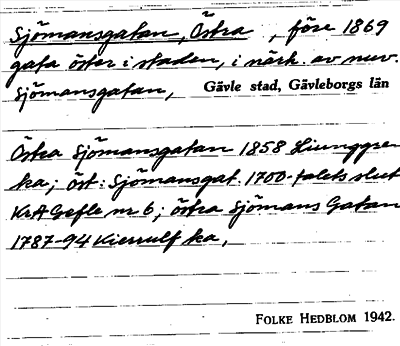 Sjömansgatan, Östra, före 1869
gata öster i staden, i närh. av nuv.
Sjömansgatan, Gävle stad, Gävleborgs län
Östra Sjömansgatan 1858 Ljunggren
ka; öst: Sjömansgat. 1700-talets slut
KrA Gefle nr 6; östra Sjömans Gatan
1787-94 Kierrulf ka,
FOLKE HEDBLOM 1942.